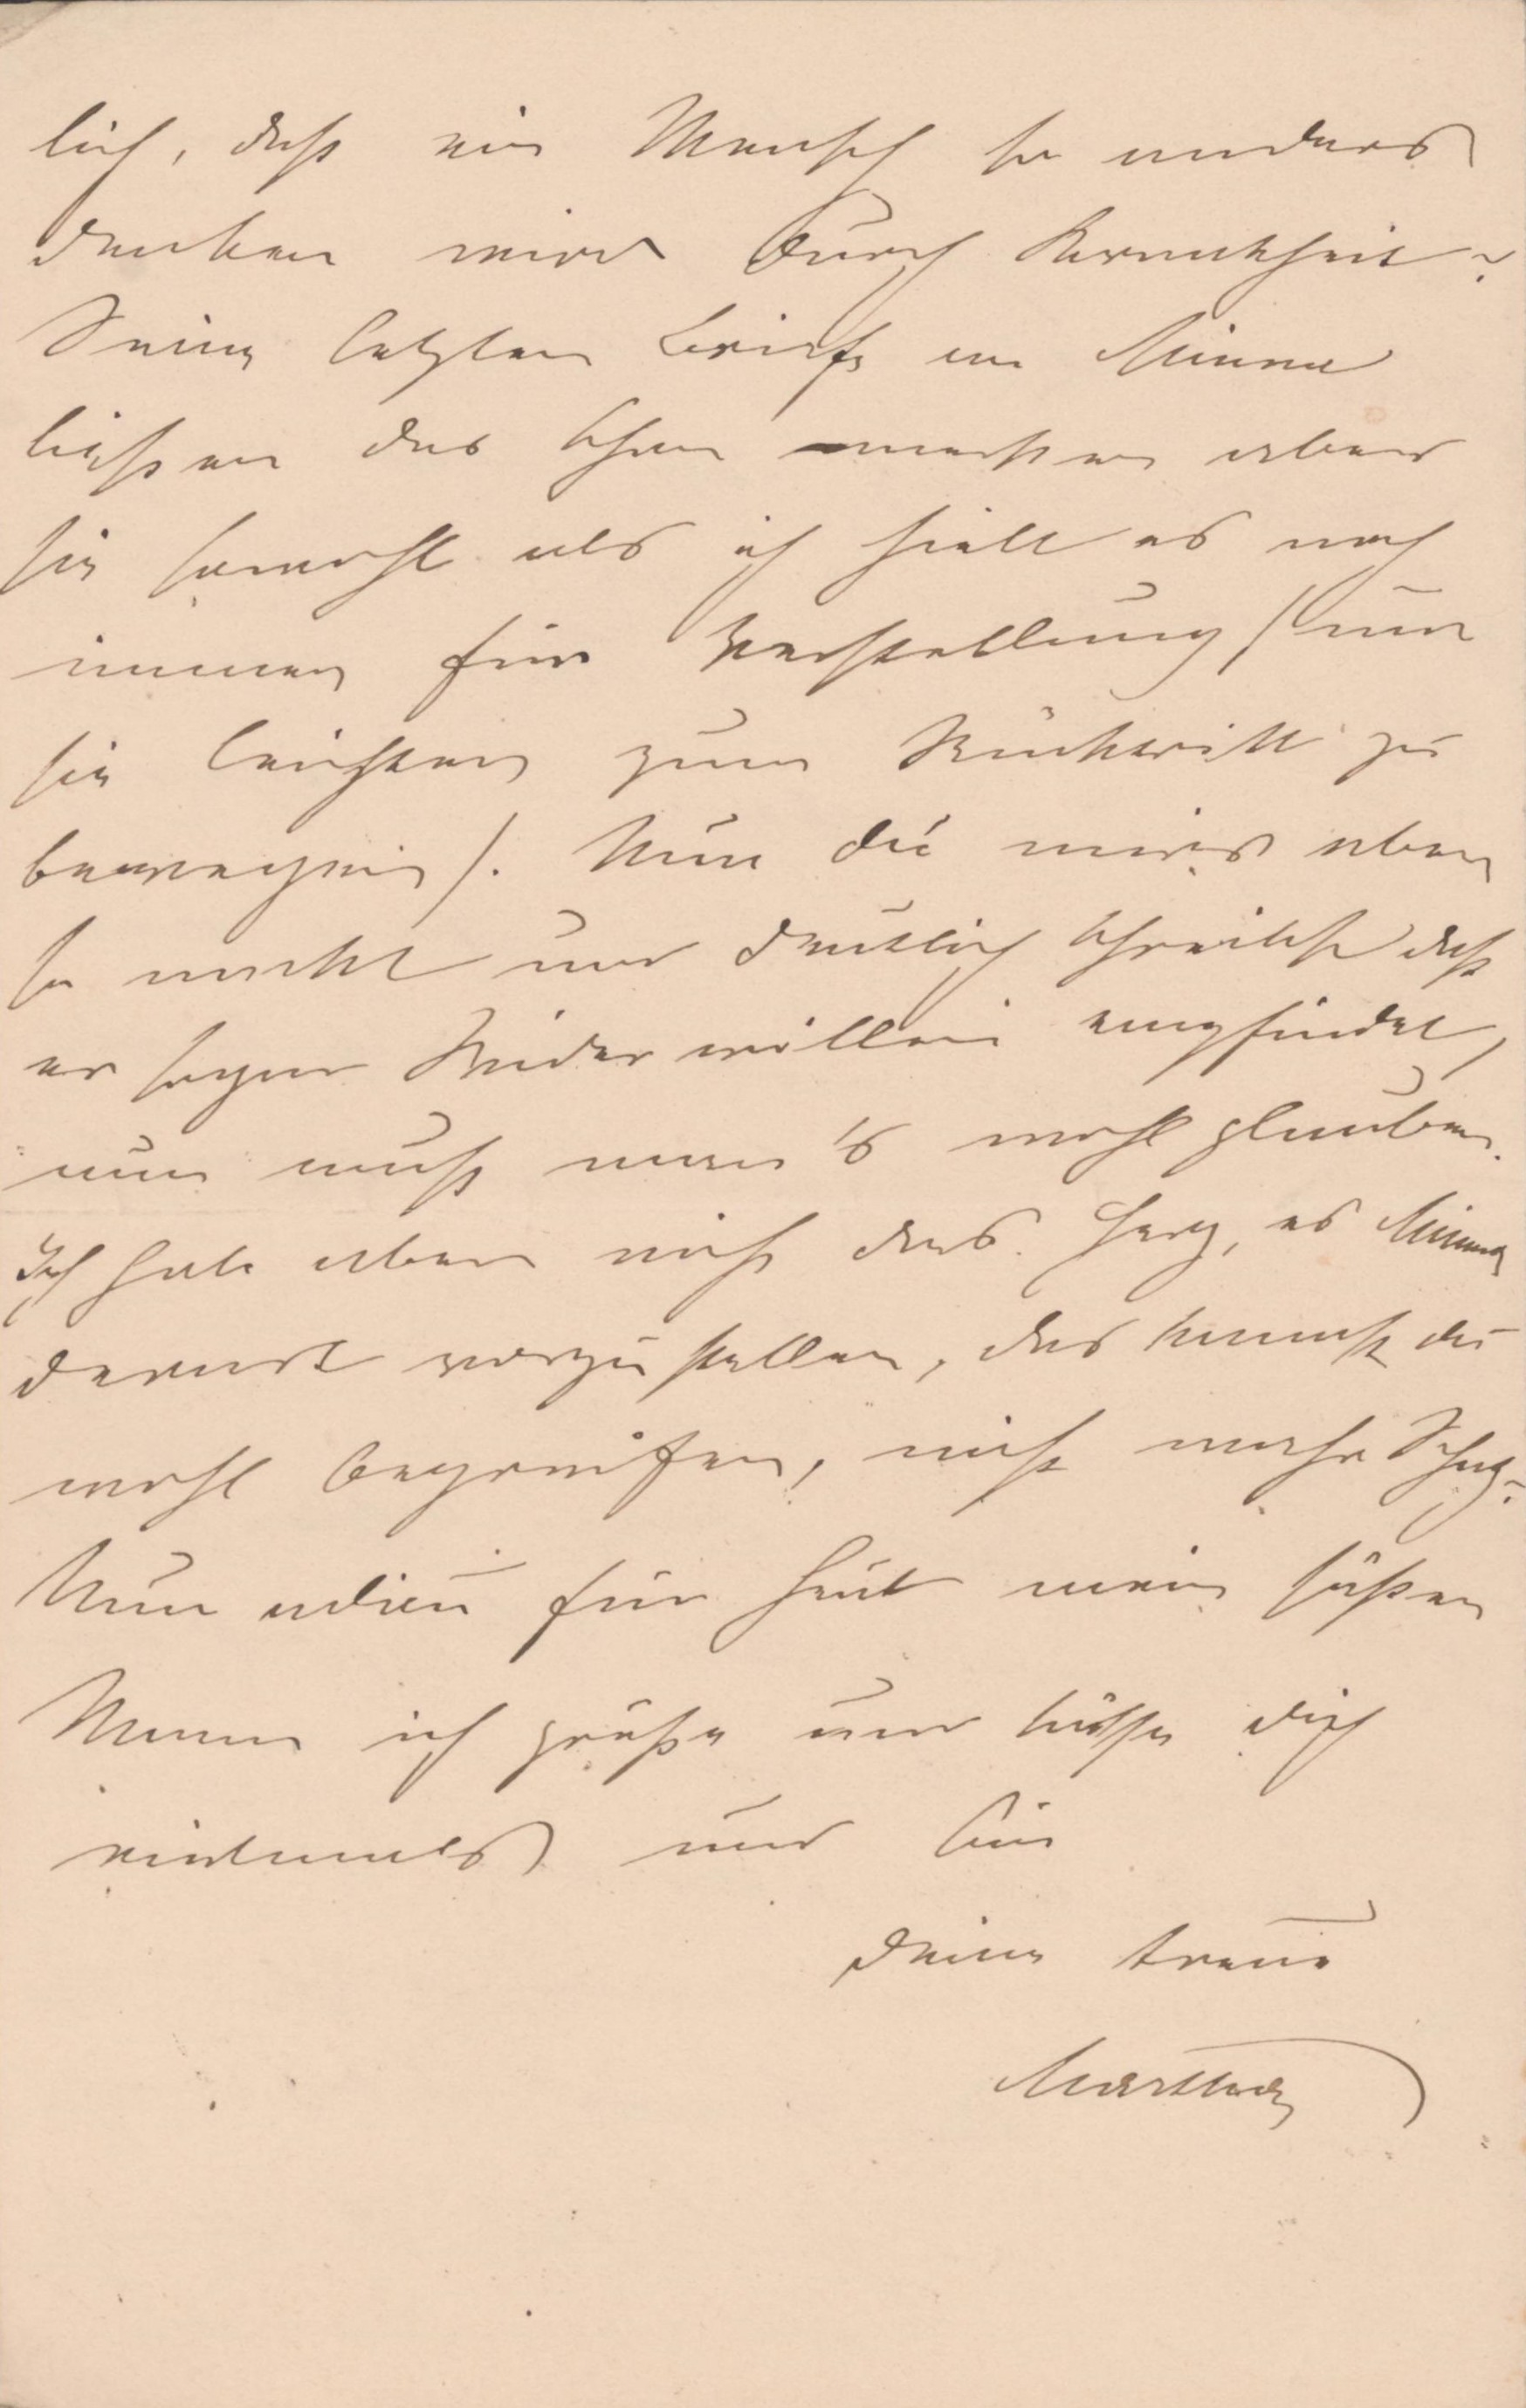 lich, daß ein Mensch so anders
denken wird durch Krankheit?
Seine letzten Briefe an Minna
ließen das schon merken aber
sie sowohl als ich hielt es noch
immer für Verstellung /um
sie leichter zum Rücktritt zu
bewegen/. Nun du mir's aber
so nackt und deutlich schreibst daß
er sogar Widerwillen empfindet,
nun muß man's wohl glauben.
Ich habe aber nicht das Herz, es Minna
derart vorzustellen, das kannst du
wohl begreifen, nicht wahr Schatz?
Nun adieu für heut mein süßer
Mann ich grüße und küsse dich
vielmals und bin
deine treue
Martha